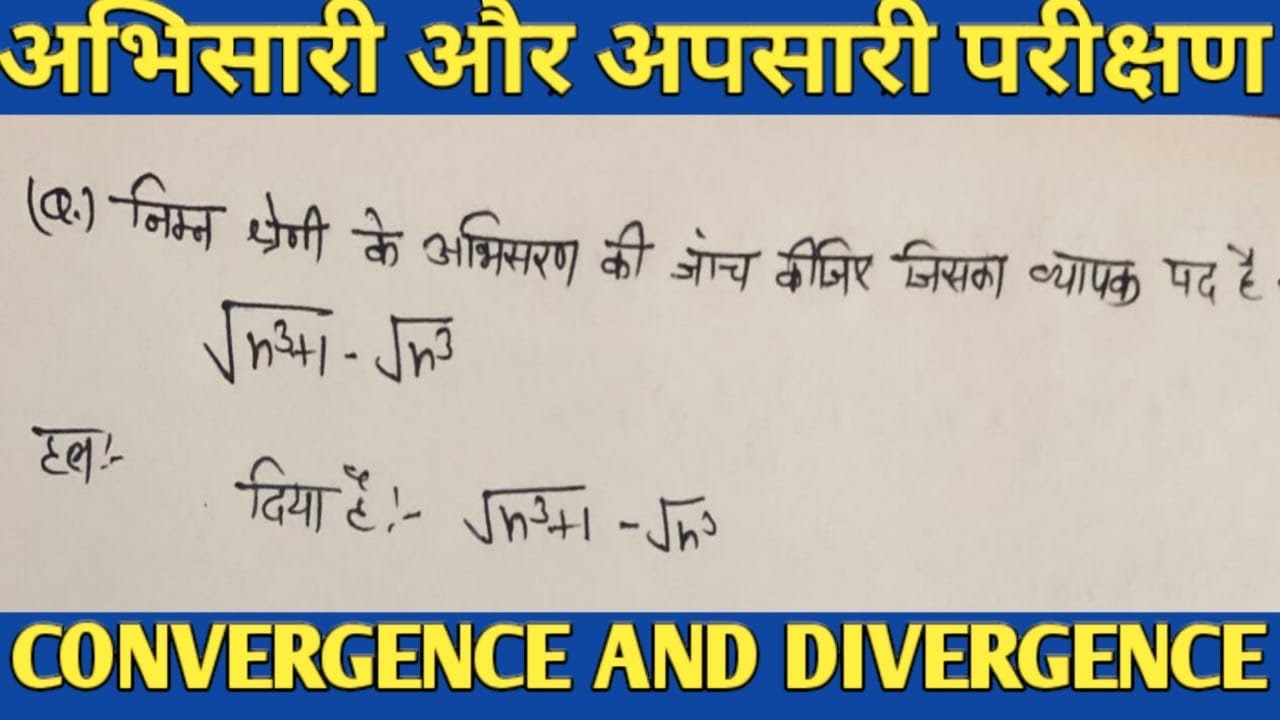 अभिसारी और अपसारी परीक्षण
(Q.) निम्न श्रेणी के अभिसरण की जांच कीजिए जिसका व्यापक पद है -
√n³+1 - √n³
हल:-
दिया है:- √n³+1 - √n³
CONVERGENCE AND DIVERGENCE